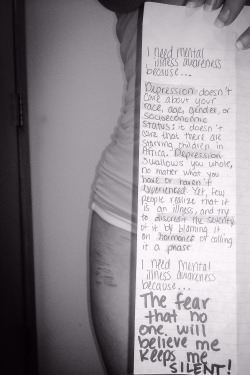 I need mental
illness awareness
because...
Depression doesn't
care about your
race, age, gender, or
socioeconomic
status; it doesn't
care that there are
starving children in
Africa. Depression
swallows you whole,
no matter what you
have or haven't
experienced. Yet, few
people realize that it
is an illness, and try
to discredit the severity
of it by blaming it
on hormones or calling
it a phase
I need mental
illness awareness
because...
The fear
that no
one will
believe me
keeps me
SILENT!